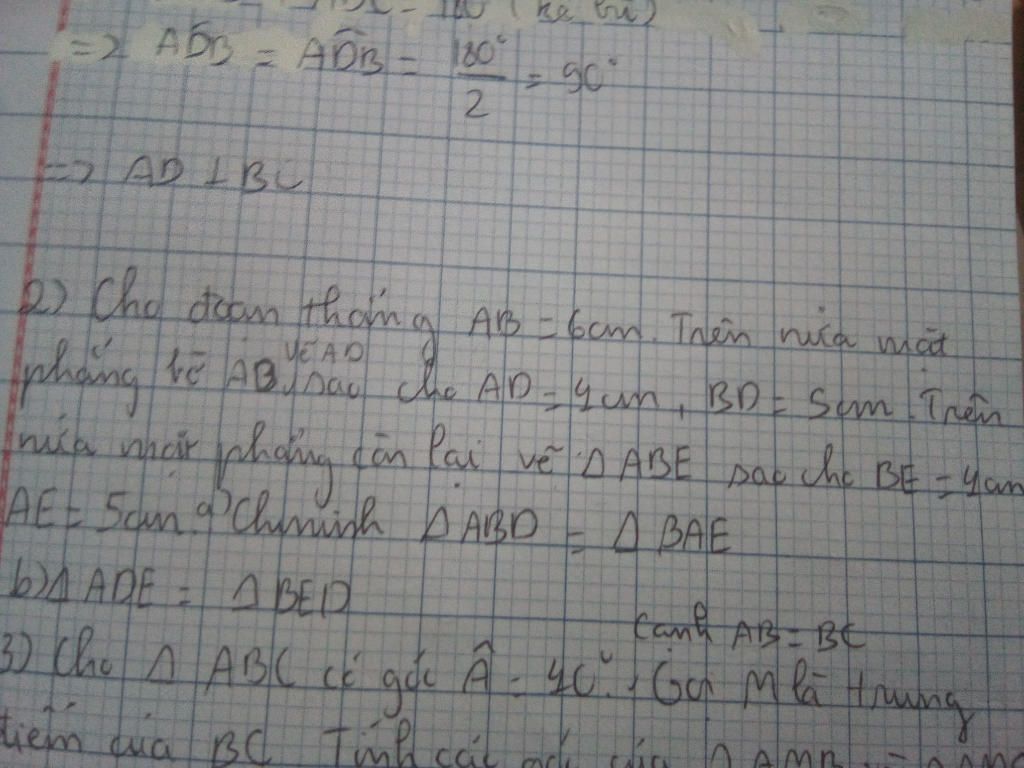 = 180 (kề bù)
=> ADB = ADB = 180°/2 = 90°
=> AD ⊥ BC
2) Cho đoạn thẳng AB = 6cm. Trên nửa mặt
phẳng bờ AB, vẽ AD sao cho AD = 4cm, BD = 5cm. Trên
nửa mặt phẳng còn lại vẽ Δ ABE sao cho BE = 4cm
AE = 5cm. a) Chminh Δ ABD = Δ BAE
b) Δ ADE = Δ BED
cạnh AB = BC
3) Cho Δ ABC có góc Â = 40°, Gọi M là trung
điểm của BC Tính các góc của Δ AMB